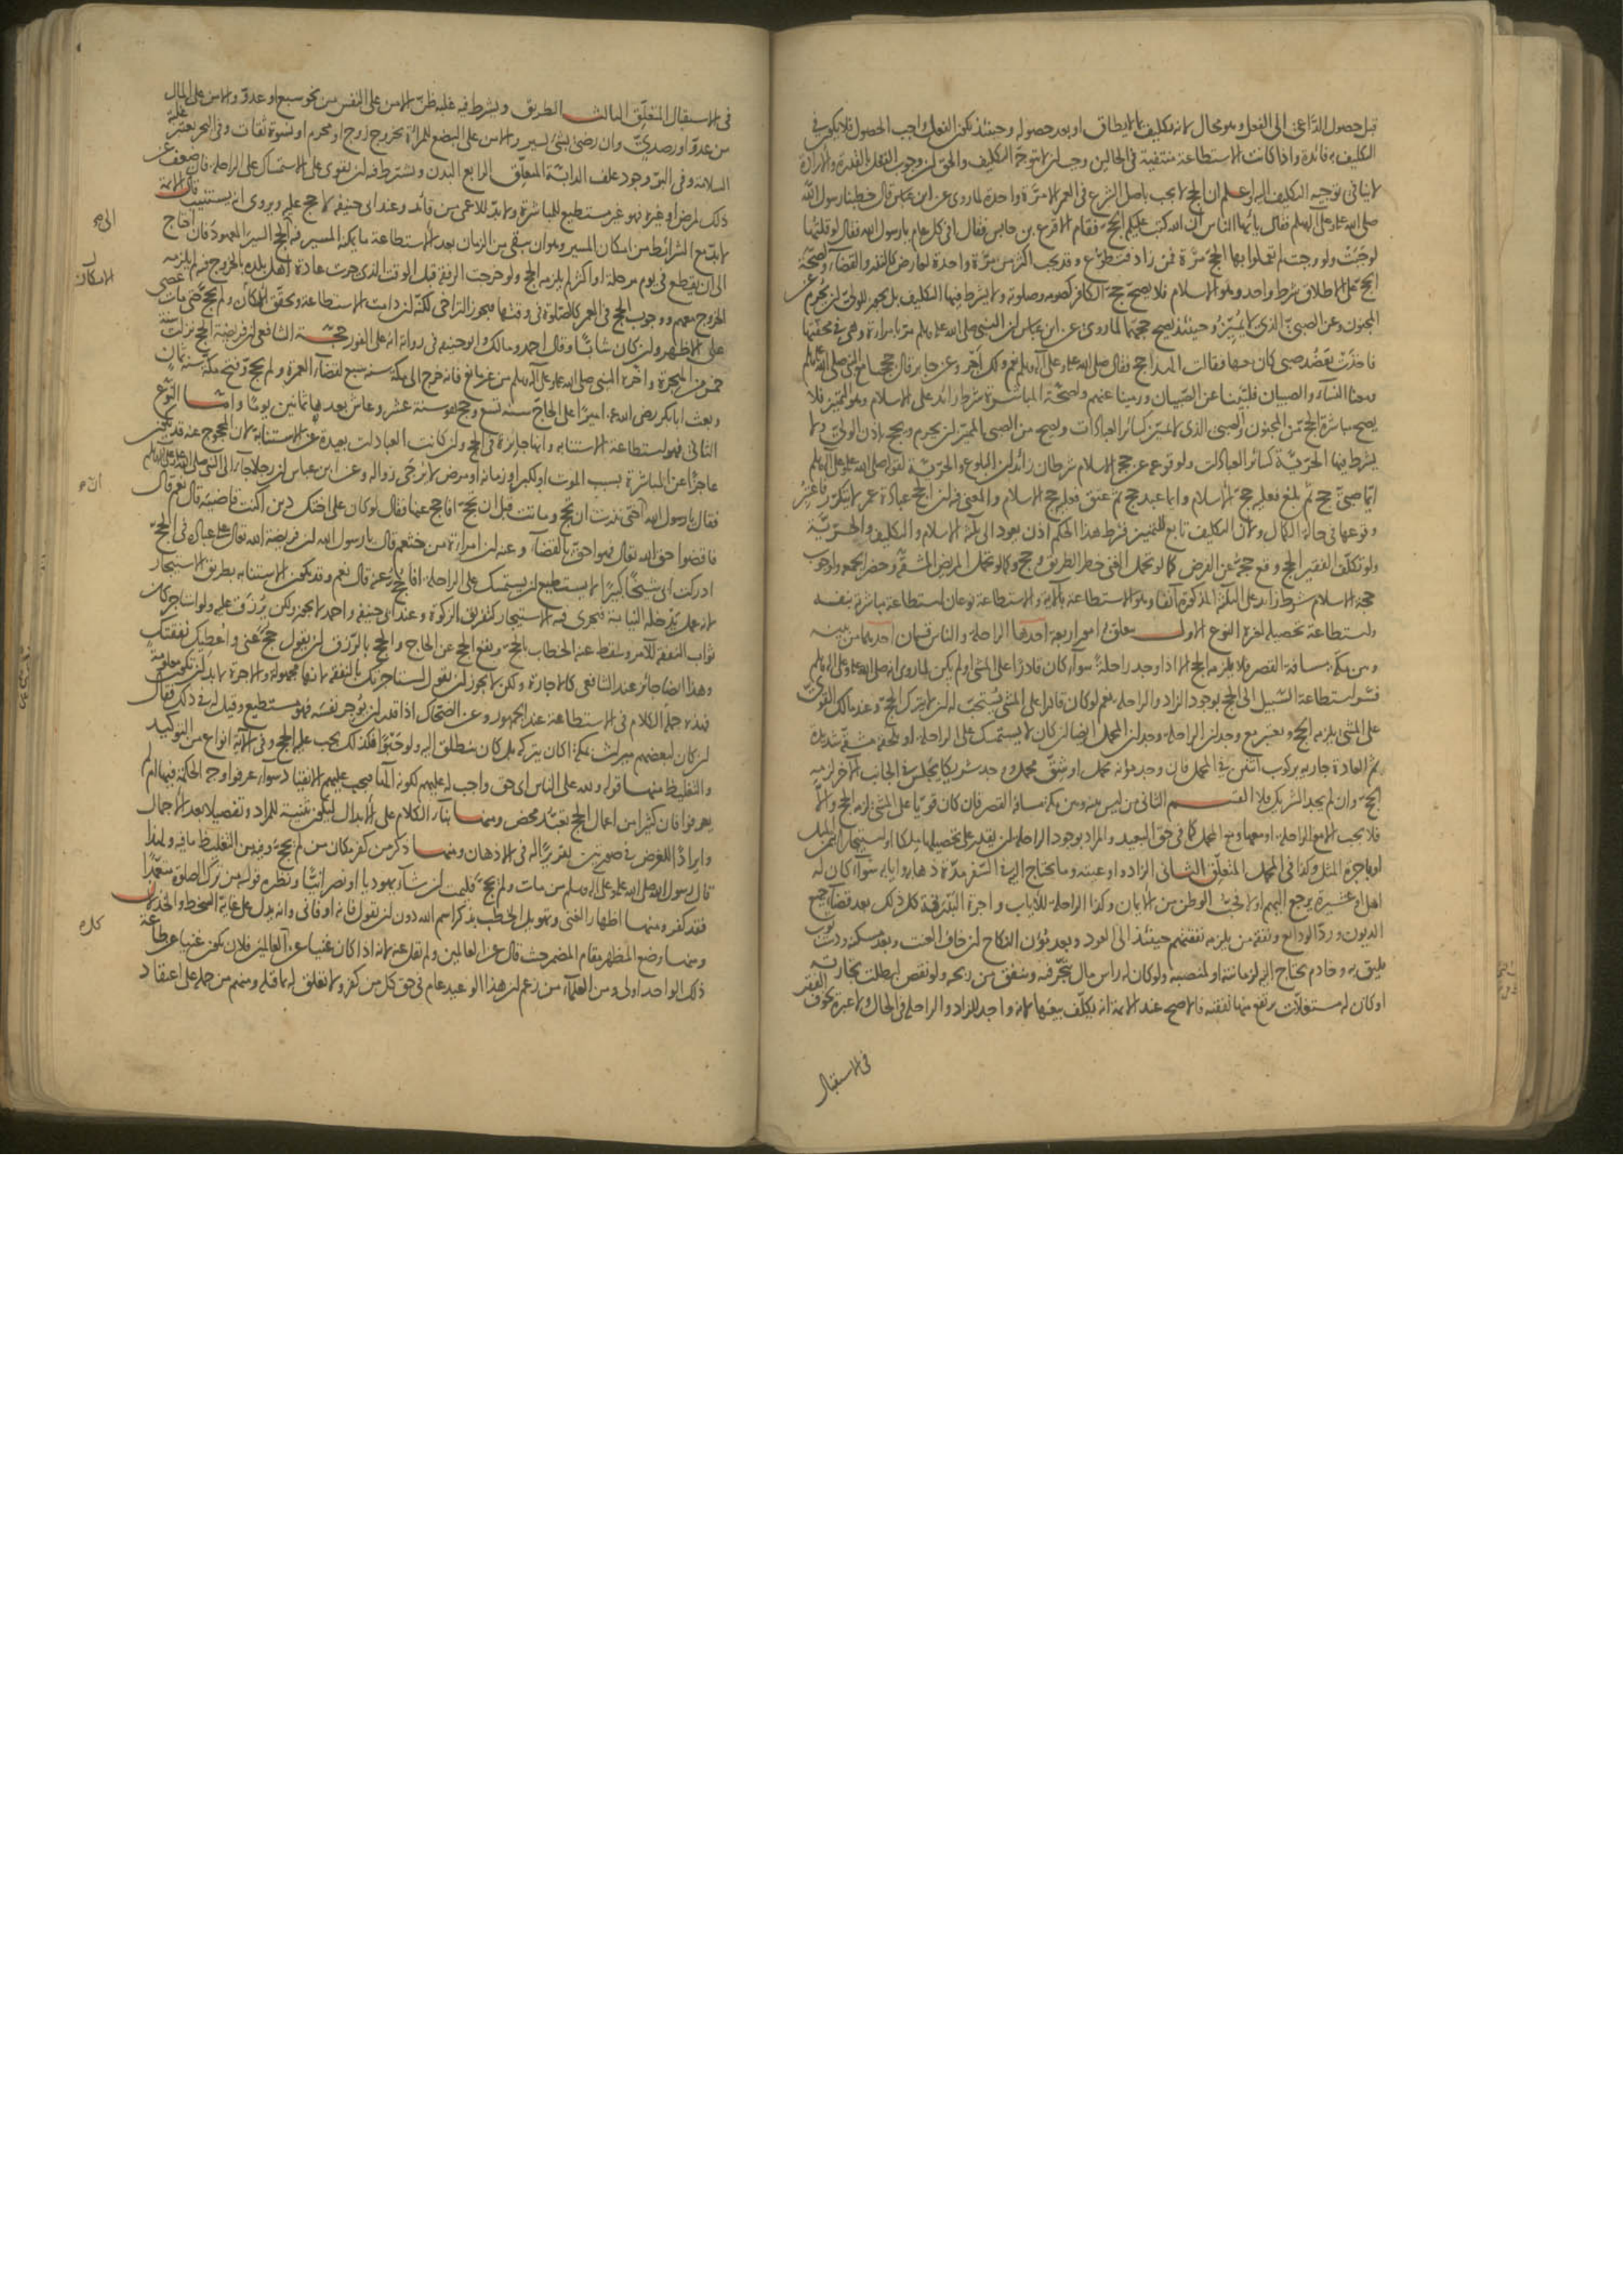 قبل حصول الداعي الى الفعل وهو محال لانه تكليف بما لا يطاق او بعد حصوله وحينئذ يكون الفعل واجب الحصول فلا يكون في
التكليف به فائدة واذا كانت الاستطاعة منتفية في الحالين وجب ان لا يتوجه التكليف والحق ان وجوب الفعل بالقدرة والارادة
لا ينافي توجيه التكليف اليه واعلم ان الحج لا يجب باصل الشرع في العمر الا مرة واحدة لما روى عن ابن عباس قال خطبنا رسول الله
صلى الله عليه وعلى آله وسلم فقال يا ايها الناس ان الله كتب عليكم الحج فقام الاقرع بن حابس فقال افي كل عام يا رسول الله فقال لو قلتها
لوجبت ولو وجبت لم تعملوا بها الحج مرة فمن زاد فتطوع وقد يجب اكثر من مرة واحدة لعارض كالنذر والقضاء ولصحة
الحج على الاطلاق شرط واحد وهو الاسلام فلا يصح حج الكافر كصومه وصلوته ولا يشترط فيها التكليف بل يجوز للولي ان يحرم عن
المجنون وعن الصبي الذي لا يميز وحينئذ يصح حجهما لما روى عن ابن عباس ان النبي صلى الله عليه وسلم مر بامراة وهي في محفتها
فاخذت بعضد صبي كان معها فقالت الهذا حج فقال صلى الله عليه وعلى آله وسلم نعم ولك اجر وعن جابر قال حججنا مع النبي صلى الله عليه وسلم
ومعنا النساء والصبيان فلبينا عن الصبيان ورمينا عنهم ولصحة المباشرة شرط زائد على الاسلام وهو التمييز فلا
يصح مباشرة الحج من المجنون والصبي الذي لا يميز كسائر العبادات ويصح من الصبي المميز ان يحرم ويحج باذن الولي ولا
يشترط فيها الحرية كسائر العبادات ولوقوعه عن حجة الاسلام شرطان زائدان البلوغ والحرية لقوله صلى الله عليه وعلى آله وسلم
ايما صبي حج ثم بلغ فعليه حجة الاسلام وايما عبد حج ثم عتق فعليه حجة الاسلام والمعنى فيه ان الحج عبادة عمر لا يتكرر فاعتبر
وقوعها في حالة الكمال ولان التكليف تابع للتمييز فشرط هذا الحكم اذن يعود الى ثلثة الاسلام والتكليف والحرية
ولو تكلف الفقير الحج وقع حجه عن الفرض كما لو تحمل الغني خطر الطريق وحج وكما لو تحمل المريض المشقة وحضر الجمعة ولوجوب
حجة الاسلام شرط زائد على الثلثة المذكورة آنفا وهو الاستطاعة بالآية والاستطاعة نوعان استطاعة مباشرة بنفسه
واستطاعة تحصيله لغيره النوع الاول يتعلق بامور اربعة احدها الراحلة والناس قسمان احدهما من بينه
وبين مكة مسافة القصر فلا يلزمه الحج الا اذا وجد راحلة سواء كان قادرا على المشي او لم يكن لما روى انه صلى الله عليه وعلى آله وسلم
فسر استطاعة السبيل الى الحج بوجود الزاد والراحلة نعم لو كان قادرا على المشي يستحب له ان لا يترك الحج وعند مالك القوي
على المشي يلزمه الحج ويعتبر مع وجدان الراحلة وجدان المحمل ايضا ان كان لا يستمسك على الراحلة او يلحقه مشقة شديدة
ثم العادة جارية بركوب اثنين في المحمل فان وجد مؤنة محمل او شق محمل ووجد شريكا يجلس في الجانب الآخر لزمه
الحج وان لم يجد الشريك فلا القسم الثاني من ليس بينه وبين مكة مسافة القصر فان كان قويا على المشي لزمه الحج والا
فلا يجب الا مع الراحلة او معها ومع المحمل كما في حق البعيد والمراد بوجود الراحلة ان يقدر على تحصيلها ملكا او استيجارا بثمن المثل
او باجرة المثل وكذا في المحمل المتعلق الثاني الزاد واوعيته وما يحتاج اليه في السفر مدة ذهابه وايابه سواء كان له
اهل او عشيرة يرجع اليهم او لا لحب الوطن من الايمان وكذا الراحلة للاياب واجرة البذرقة كل ذلك بعد قضاء جميع
الديون ورد الودائع ونفقة من يلزمه نفقتهم حينئذ الى العود وبعد مؤن النكاح ان خاف العنت وبعد مسكن ودست ثوب
يليق به وخادم يحتاج اليه لزمانته او لمنصبه ولو كان له راس مال يتجر فيه وينفق من ربحه ولو نقص لبطلت تجارته
او كان له مستغلات يرتفع منها نفقته فالاصح عند الائمة انه يكلف بيعها لانه واجد للزاد والراحلة في الحال ولا عبرة بخوف الفقر
في الاستقبال
في الاستقبال المتعلق الثالث الطريق ويشترط فيه غلبة ظن الامن على النفس من نحو سبع او عدو والامن على المال
من عدو او رصدي وان رضي بشئ يسير والامن على البضع للمراة بخروج زوج او محرم او نسوة ثقات وفي البحر يعتبر غلبة
السلامة وفي البر وجود علف الدابة المتعلق الرابع البدن ويشترط فيه ان يقوى على الاستمساك على الراحلة فان ضعف عن
ذلك لمرض او غيره فهو غير مستطيع للمباشرة ولا بد للاعمى من قائد وعند ابي حنيفة لا حج عليه ويروى انه يستنيب قال الائمة
لا بد مع الشرائط من امكان المسير وهو ان يبقى من الزمان بعد الاستطاعة ما يمكنه المسير فيه الى الحج السير المعهود فان احتاج
الى ان يقطع في يوم مرحلة او اكثر لم يلزمه الحج ولو خرجت الرفقة قبل الوقت الذي جرت عادة اهل بلده بالخروج فيه لم يلزمه
الخروج معهم ووجوب الحج في العمر كالصلوة في وقتها فيجوز التراخي لكنه ان دامت الاستطاعة وتحقق الامكان ولم يحج حتى مات عصى
على الاظهر وان كان شابا وقال احمد ومالك وابو حنيفة في رواية انه على الفور حجة الشافعي ان فريضة الحج نزلت سنة
خمس من الهجرة واخره النبي صلى الله عليه وعلى آله وسلم من غير مانع فانه خرج الى مكة سنة سبع لقضاء العمرة ولم يحج وفتح مكة سنة ثمان
وبعث ابا بكر رضي الله عنه اميرا على الحاج سنة تسع وحج هو سنة عشر وعاش بعدها ثمانين يوما واما النوع
الثاني فهو استطاعة الاستنابة وانها جائزة في الحج وان كانت العبادات بعيدة عن الاستنابة لان المحجوج عنه قد يكون
عاجزا عن المباشرة بسبب الموت او لكبر او زمانة او مرض لا يرجى زواله وعن ابن عباس ان رجلا جاء الى النبي صلى الله عليه وعلى آله وسلم
فقال يا رسول الله اختي نذرت ان تحج وماتت قبل ان تحج افاحج عنها فقال لو كان على اختك دين اكنت قاضيه قال نعم قال
فاقضوا حق الله تعالى فهو احق بالقضاء وعنه ان امراة من خثعم قالت يا رسول الله ان فريضة الله تعالى على عباده في الحج
ادركت ابي شيخا كبيرا لا يستطيع ان يستمسك على الراحلة افاحج عنه قال نعم وقد يكون الاستنابة بطريق الاستيجار
لانه عمل يدخله النيابة فيجرى فيه الاستيجار كتفريق الزكوة وعند ابي حنيفة واحمد لا يجوز ولكن يرزق عليه ولو استاجر كان
ثواب النفقة للآمر وسقط عنه الخطاب بالحج ويقع الحج عن الحاج والحج بالرزق ان يقول حج عني واعطيك نفقتك
وهذا ايضا جائز عند الشافعي كالاجارة ولكن لا يجوز ان يقول استاجرتك بالنفقة لانها مجهولة والاجرة لا بد ان تكون معلومة
فهذه جملة الكلام في الاستطاعة عند الجمهور وعن الضحاك اذا قدر ان يؤجر نفسه فهو مستطيع وقيل له في ذلك فقال
ان كان لبعضهم ميراث بمكة اكان يتركه بل كان ينطلق اليه ولو حبوا فكذلك يجب عليه الحج وفي الآية انواع من التوكيد
والتغليظ منها قوله ولله على الناس اي حق واجب له عليهم لكونه الها فيجب عليهم الانقياد سواء عرفوا وجه الحكمة فيها ام لم
يعرفوا فان كثيرا من اعمال الحج تعبد محض ومنها بناء الكلام على الابدال ليكون تثنية للمراد وتفصيلا بعد الاجمال
وايرادا للغرض في صورتين تقريرا له في الاذهان ومنها ذكر من كفر مكان من لم يحج وفيه من التغليظ ما فيه ولهذا
قال رسول الله صلى الله عليه وعلى آله وسلم من مات ولم يحج فليمت ان شاء يهوديا او نصرانيا ونظيره قوله من ترك الصلوة متعمدا
فقد كفر ومنها اظهار الغنى وتهويل الخطب بذكر اسم الله دون ان يقول فانه او فاني وانه يدل على غاية السخط والخذلان
ومنها وضع المظهر مقام المضمر حيث قال عن العالمين ولم يقل عنه لانه اذا كان غنيا عن كل العالمين فلان يكون غنيا عن طاعة
ذلك الواحد اولى ومن العلماء من زعم ان هذا الوعيد عام في حق كل من كفر ولا تعلق له بما قبله ومنهم من حمله على اعتقاد
الى
الامكان
ان
كل